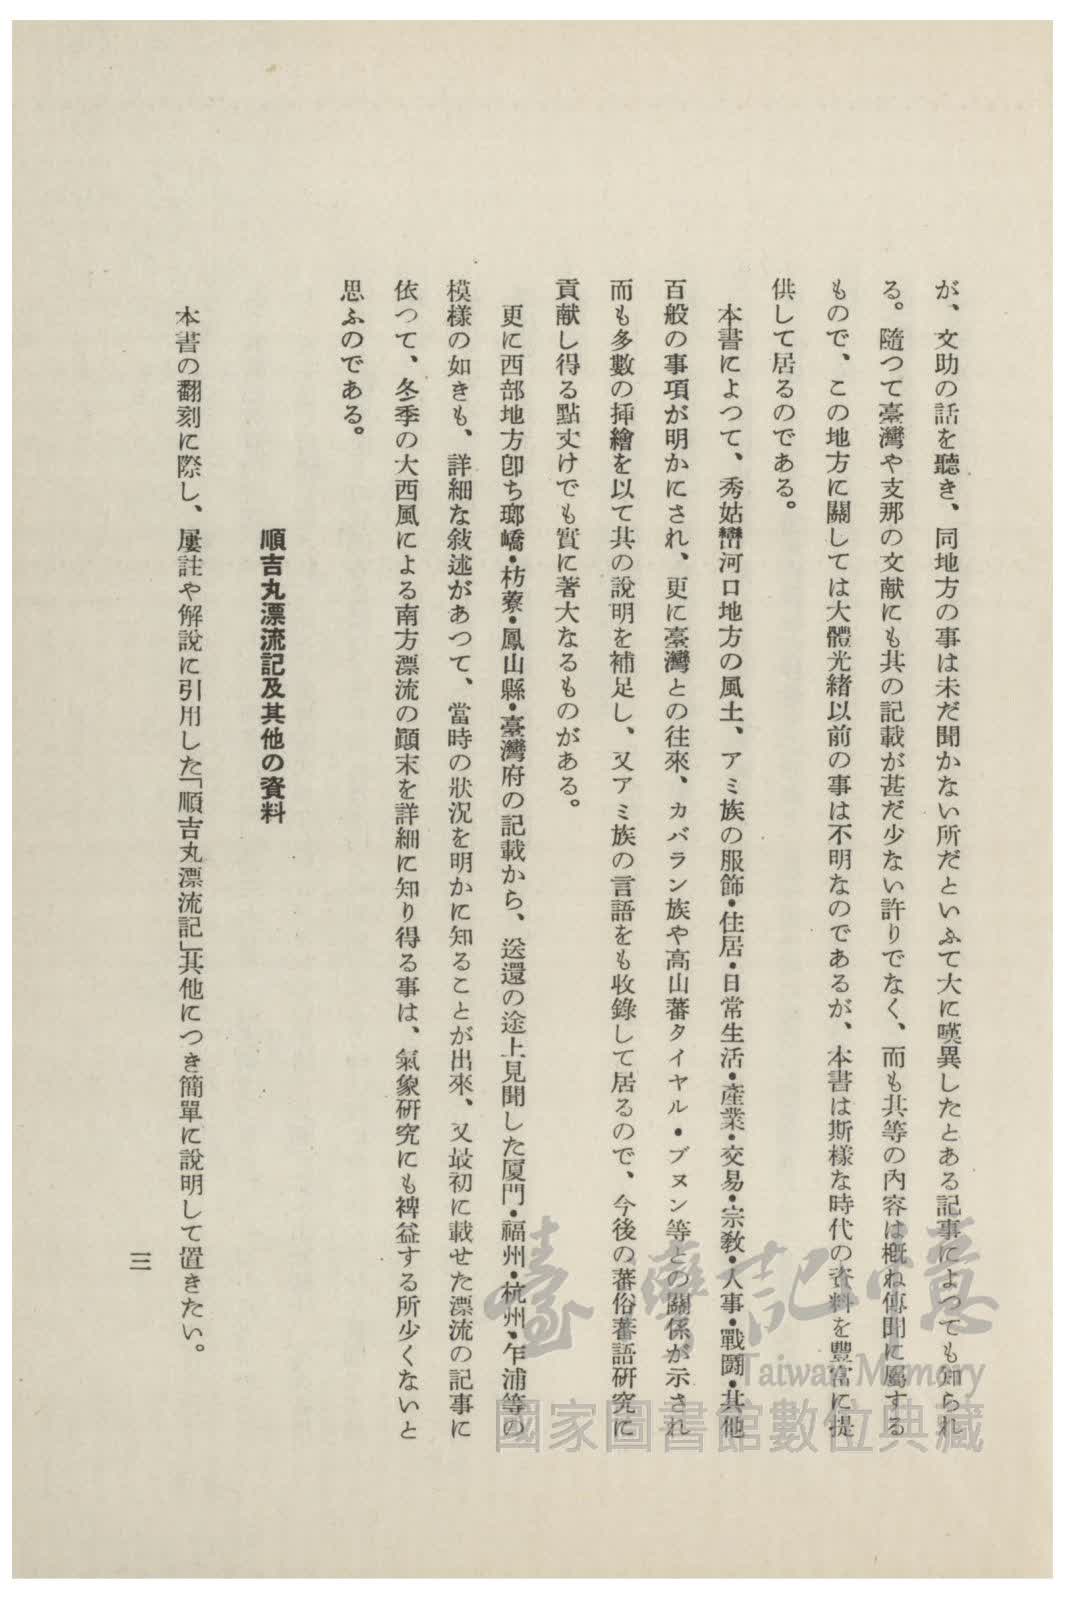 が、文助の話を聽き、同地方の事は未だ聞かない所だといふて大に嘆異したとある記事によつても知られ
る。隨つて臺灣や支那の文献にも其の記載が甚だ少ない許りでなく、而も其等の內容は概ね傳聞に屬する
もので、この地方に關しては大體光緒以前の事は不明なのであるが、本書は斯樣な時代の資料を豐富に提
供して居るのである。
本書によつて、秀姑巒河口地方の風土、アミ族の服飾・住居・日常生活・產業・交易・宗敎・人事・戰鬪・其他
百般の事項が明かにされ、更に臺灣との往來、カバラン族や高山蕃タイヤル・ブヌン等との關係が示され
而も多數の揷繪を以て其の說明を補足し、又アミ族の言語をも收錄して居るので、今後の蕃俗蕃語硏究に
貢献し得る點丈けでも實に著大なるものがある。
更に西部地方卽ち瑯嶠・枋藔・鳳山縣・臺灣府の記載から、送還の途上見聞した厦門・福州・杭州・乍浦等の
模樣の如きも、詳細な敍述があつて、當時の狀況を明かに知ることが出來、又最初に載せた漂流の記事に
依つて、冬季の大西風による南方漂流の顚末を詳細に知り得る事は、氣象硏究にも裨益する所少くないと
思ふのである。
順吉丸漂流記及其他の資料
本書の翻刻に際し、屢註や解說に引用した「順吉丸漂流記」其他につき簡單に說明して置きたい。
三
臺灣記憶
Taiwan Memory
國家圖書館數位典藏